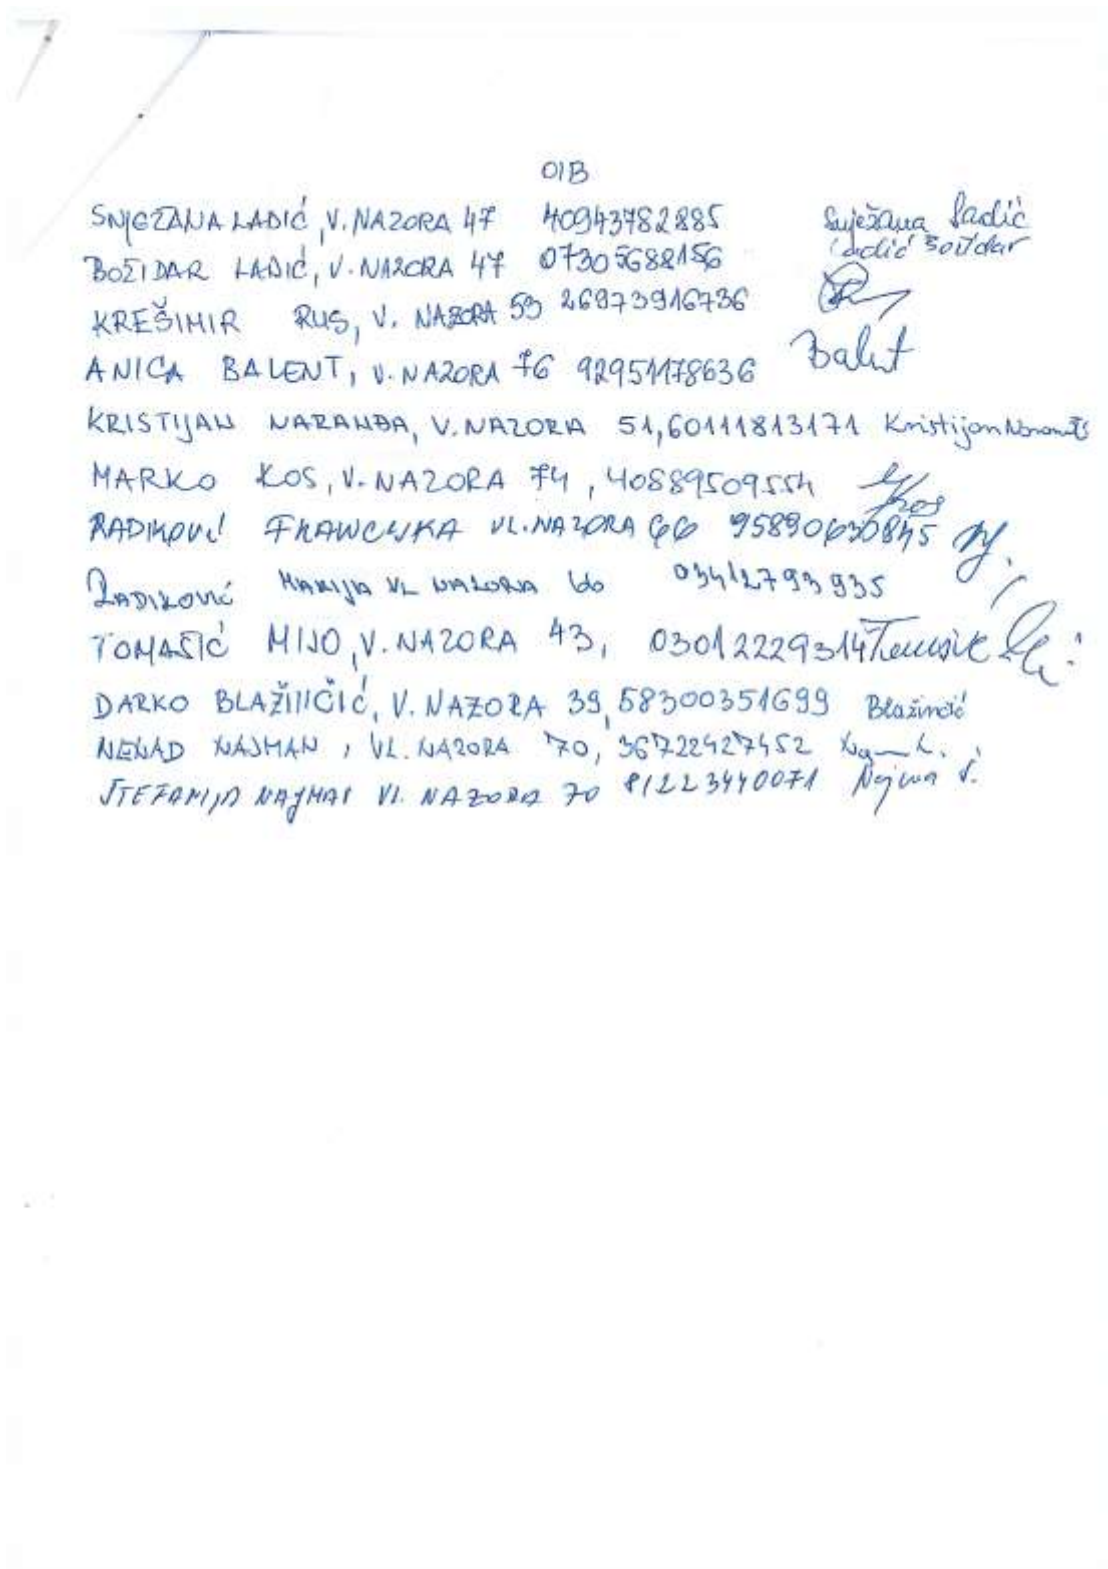 OIB
SNJEŽANA LADIĆ, V. NAZORA 47 40943782885 Snježana Ladić
BOŽIDAR LADIĆ, V. NAZORA 47 07305688156 Ladić Božidar
KREŠIMIR RUS, V. NAZORA 53 26973916736
ANICA BALENT, V. NAZORA 76 92951178636 Balent
KRISTIJAN NARANĐA, V. NAZORA 51, 60111813171 Kristijan
MARKO KOS, V. NAZORA 74, 40889509554 Kos
RADIKOVIĆ FRANCIJKA VL. NAZORA 66 95890630845
RADIKOVIĆ MARIJA VL NAZORA 66 03412793935
TOMAŠIĆ MIJO, V. NAZORA 43, 03012229314 Tomašić
DARKO BLAŽINČIĆ, V. NAZORA 39, 58300351699 Blažinčić
NENAD NAJMAN, VL. NAZORA 70, 36722427452
ŠTEFANIJA NAJMAN Vl. NAZORA 70 81223440071 Najman Š.